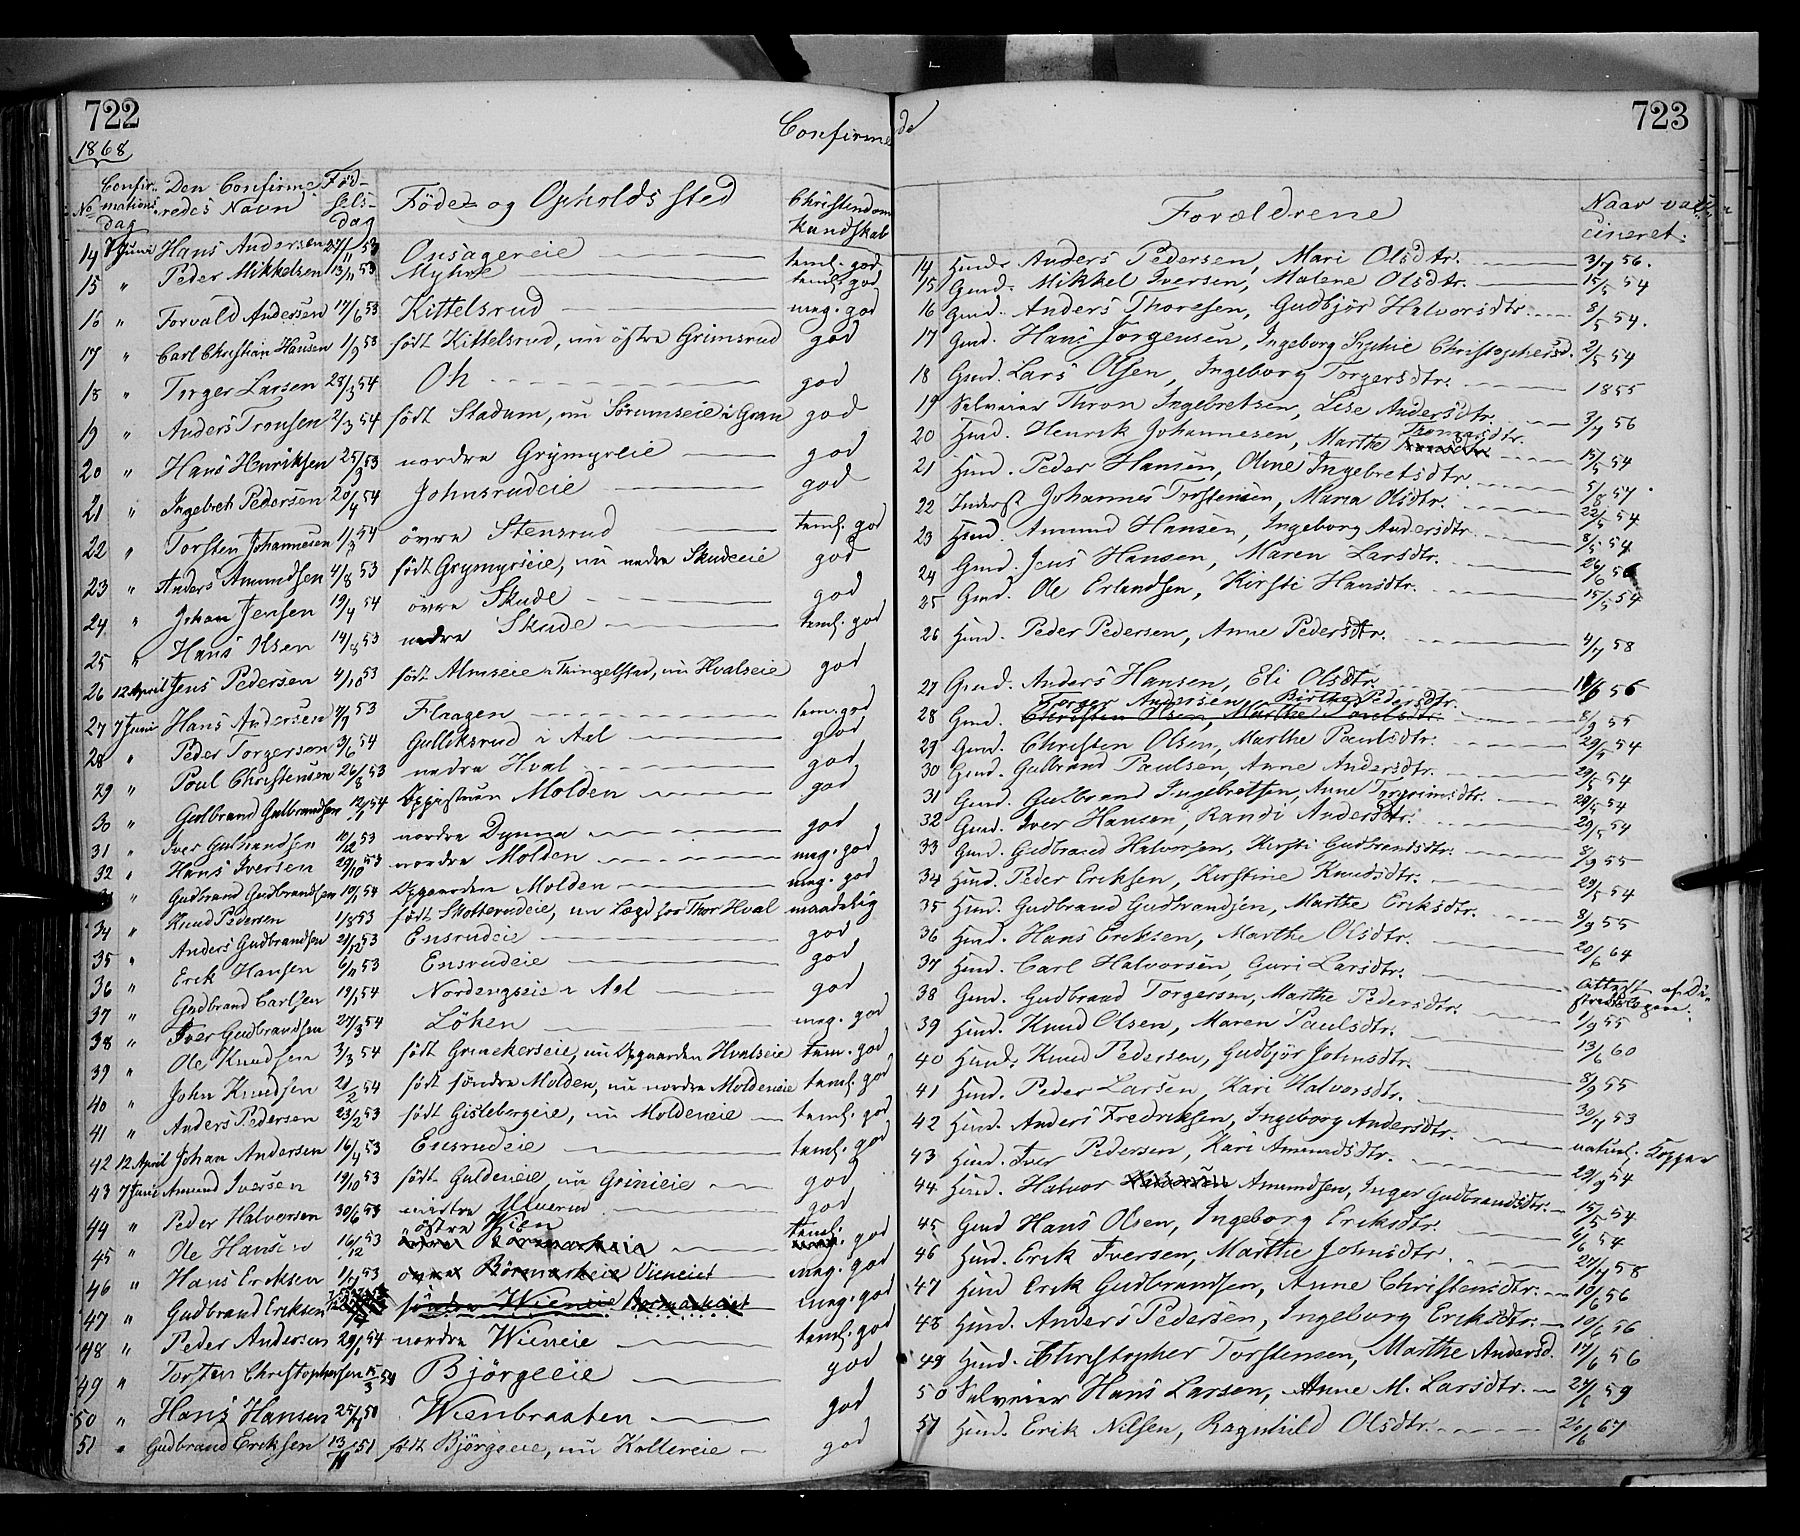 722
1868
Confirme
No Confirmations dag Den Confirmeredes Navn Fødselsdag Føde- og Opholdssted Christendoms Kundskab
14 7 Juni Hans Andersen 27/11 53 Onsagereie taml. god
15 " Peder Mikkelsen 13/11 53 Myhre taml. god
16 " Torvald Andersen 17/6 53 Kittelsrud meg. god
17 " Carl Christian Hansen 1/9 53 født Kittelsrud, nu østre Grimsrud god
18 " Torger Larsen 28/3 54 Oh god
19 " Anders Tronsen 2/3 54 født Stadum, nu Sørumseie i Gran god
20 " Hans Henriksen 25/9 53 nordre Grymyreie god
21 " Ingebret Pedersen 20/4 54 Johnsrudeie god
22 " Torsten Johannesen 1/3 54 øvre Stensrud taml. god
23 " Anders Amundsen 4/8 53 født Grymyrseie, nu nedre Skudeeie god
24 " Johan Jensen 19/4 54 øvre Skude god
25 " Hans Olsen 14/8 53 nedre Skude taml. god
26 12 April Jens Pedersen 4/10 53 født Almseie i Thingelstad, nu Hvalseie god
27 7 Juni Hans Andersen 7/9 53 Flaagen tam. god
28 " Peder Torgersen 3/6 54 Gulliksrud i Aal god
29 " Poul Christensen 26/8 53 nedre Hval god
30 " Gulbrand Gulbrandsen 12/1 54 Oppistuen Molden god
31 " Iver Gulbrandsen 10/12 53 nordre Dynna god
32 " Hans Iversen 29/10 53 nordre Molden meg. god
" Gudbrand Gudbrandsen 10/1 54 Opgaarden Molden meg. god
34 " Knud Pedersen 1/3 53 født Skotterudeie, nu Lægd hos Thor Hval maadelig
35 " Anders Gudbrandsen 21/12 53 Ensrudeie god
36 " Erik Hansen 6/11 53 Ensrudeie god
37 " Gudbrand Carlsen 19/1 54 Nordengseie i Aal god
38 " Iver Gudbrandsen 27/3 54 Løken meg. god
39 " Ole Knudsen 3/3 54 født Grinekerseie, nu Opgaarden Hvalseie tam. god
40 " John Knudsen 21/2 54 født søndre Molden, nu nordre Moldeneie taml. god
41 " Anders Pedersen 23/2 53 født Gislebergeie, nu Moldeneie taml. god
42 12 April Johan Andersen 16/4 53 Ensrudeie taml. god
43 7 Juni Amund Iversen 19/10 53 født Guldeneie, nu Grinieie god
44 " Peder Halvorsen 30/6 53 midtre Ulverud god
45 " Ole Hansen 16/12 53 østre Wien taml. god
46 " Hans Eriksen 1/11 53 øvre Børmarkeie Vieneiet meg. god
47 " Gudbrand Eriksen søndre Wieneie Børmarkeiet meg. god
48 " Peder Andersen 29/1 54 nordre Wieneie taml. god
49 " Torsten Christophersen 15/3 54 Bjørgeeie god
50 " Hans Hansen 25/7 50 Wienbraaten god
51 " Gudbrand Eriksen 13/11 51 født Bjørgeeie, nu Kollereie god
de
723
Forældrene Naar vaccineret.
14 Husm. Anders Pedersen, Mari Olsdtr. 3/7 56.
15 Gmd. Mikkel Iversen, Malene Olsdtr. 15/5 54
16 Gmd. Anders Thoresen, Gudbjør Halvorsdtr. 8/5 54.
17 Gmd. Hans Jørgensen, Ingeborg Sophie Christophersd. 2/5 54
18 Gmd. Lars Olsen, Ingeborg Torgersdtr. 1855
19 Selveier Thron Ingebretsen, Lise Andersdtr. 3/7 56
20 Hmd. Henrik Johannesen, Marthe Thomasdtr. 15/5 54
21 Hmd. Peder Hansen, Oline Ingebretsdtr. 5/8 57.
22 Inderst Johannes Trostensen, Maria Olsdtr. 22/5 54
23 Hmd. Amund Hansen, Ingeborg Andersdtr. 8/5 54
24 Gmd. Jens Hansen, Maren Larsdtr. 26/6 56
25 Gmd. Ole Erlandsen, Kirsti Hansdtr. 15/5 54
26 Hmd. Peder Pedersen, Anne Pedersdtr. 4/7 58
27 Gmd. Anders Hansen, Eli Olsdtr. 11/6 56
28 Gmd. Torger Andersen, Birthe Pedersdtr. Christen Olsen, Marthe Paulsdtr. 8/9 55
29 Gmd. Christen Olsen, Marthe Paulsdtr. 29/5 54
30 Gmd. Gulbrand Paulsen, Anne Andersdtr. 29/5 54
31 Gmd. Gulbrand Ingebretsen, Anne Torgrimsdtr. 29/5 54
32 Gmd. Iver Hansen, Randi Andersdtr. 29/5 54
33 Gmd. Gudbrand Halvorsen, Kirsti Gudbrandsdtr. 8/9 55
34 Hmd. Peder Eriksen, Kirstine Knudsdtr. 29/5 54
35 Hmd. Gudbrand Gudbrandsen, Marthe Eriksdtr. 8/9 55
36 Hmd. Hans Eriksen, Marthe Olsdtr. 20/6 64
37 Hmd. Carl Halvorsen, Guri Larsdtr. Attest af Districtslægen.
38 Gmd. Gudbrand Torgersen, Marthe Pedersdtr. 1/9 55
39 Hmd. Knud Olsen, Maren Paulsdtr. 13/6 60
40 Hmd. Knud Pedersen, Gudbjør Johnsdtr. 8/9 55
41 Hmd. Peder Larsen, Kari Halvorsdtr. 30/7 53
42 Hmd. Anders Fredriksen, Ingeborg Andersdtr. naturl. Kopper
43 Hmd. Iver Pedersen, Kari Amundsdtr. 29/9 54
44 Hmd. Halvor Amundsen, Inger Gudbrandsdtr. 15/5 54
45 Gmd Hans Olsen, Ingeborg Eriksdtr. 9/6 54
46 Hmd. Erik Iversen, Marthe Johnsdtr 27/7 58
47 Hmd Erik Gudbrandsen, Anne Christensdtr. 10/6 56
48 Hmd. Anders Pedersen, Ingeborg Eriksdtr. 10/6 56
49 Hmd. Christopher Torstensen, Marthe Andersd. 17/6 56
50 Selveier Hans Larsen, Anne M. Larsdtr. 27/6 59
51 Hmd. Erik Nilsen, Ragnhild Olsdtr. 20/6 67